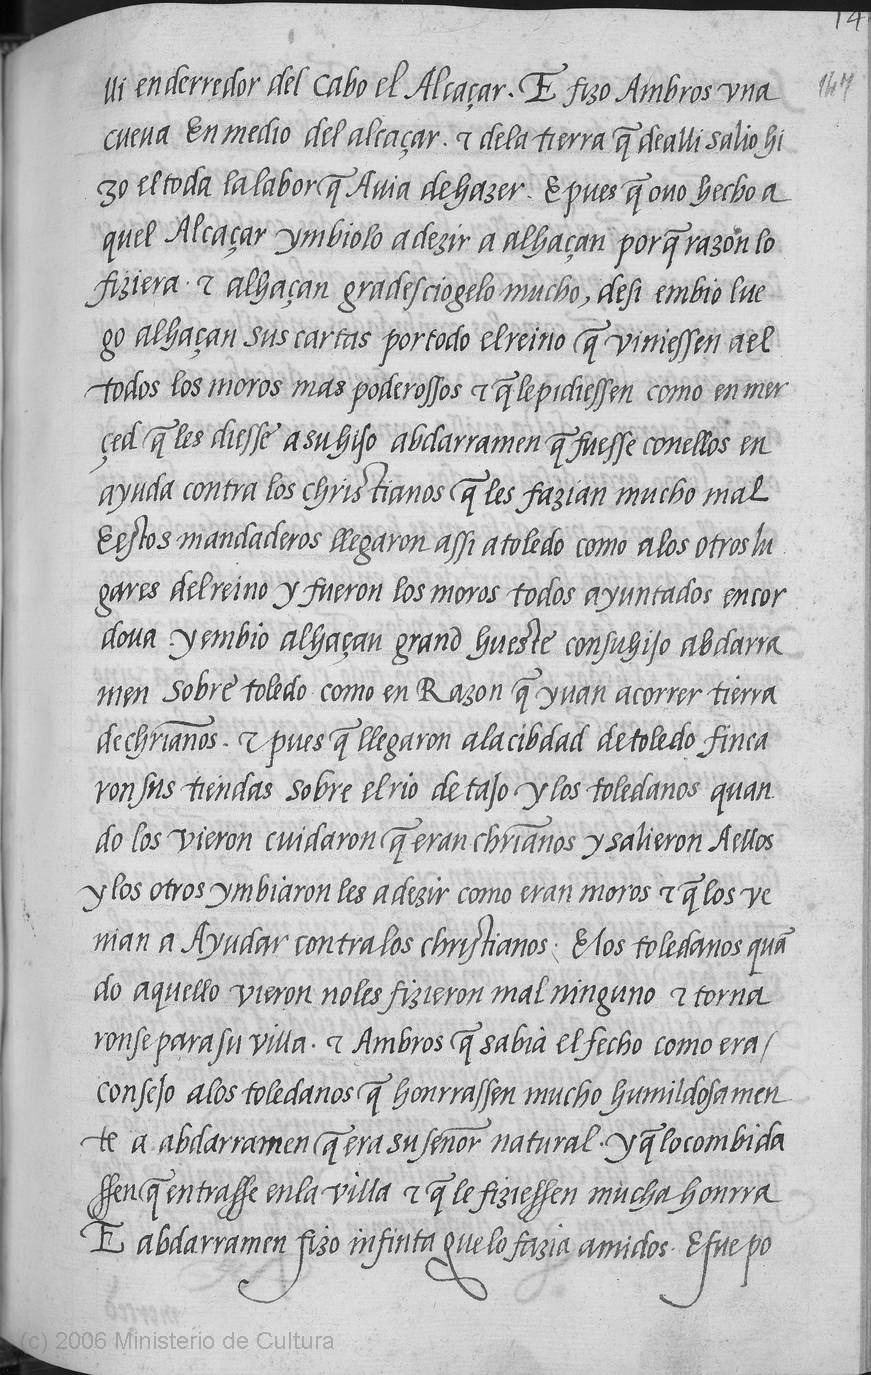 14
147
lli enderredor del Cabo el Alcaçar. E fizo Ambros vna
cueua En medio del alcaçar. τ dela tierra q̃ dealli salio hi
zo el toda la labor q̃ Auia de hazer. E pues q̃ ouo hecho a
quel Alcaçar ymbiolo a dezir a alhaçan por q̃ razon lo
fiziera. τ alhaçan gradesciogelo mucho, desi embio lue
go alhaçan sus cartas por todo el reino q̃ viniessen a el
todos los moros mas poderossos τ q̃ le pidiessen como en mer
çed q̃ les diesse a su hijo abdarramen q̃ fuesse con ellos en
ayuda contra los christianos q̃ les fazian mucho mal
E estos mandaderos llegaron assi a toledo como a los otros lu
gares del reino y fueron los moros todos ayuntados en cor
doua. y embio alhaçan grand hueste con su hijo abdarra
men sobre toledo como en Razon q̃ yuan acorrer tierra
de chrianos. τ pues q̃ llegaron ala cibdad de toledo finca
ron sus tiendas sobre el rio de tajo y los toledanos quan
do los vieron cuidaron q̃ eran chrianos y salieron A ellos
y los otros ymbiaron les a dezir como eran moros τ q̃ los ve
nian a Ayudar contra los christianos. E los toledanos quã
do aquello vieron no les fizieron mal ninguno τ torna
ronse para su villa. τ Ambros q̃ sabia el fecho como era/
consejo alos toledanos q̃ honrrassen mucho humildosamen
te a abdarramen q̃ era su señor natural. y q̃ lo combida
ssen q̃ entrasse en la villa τ q̃ le fiziessen mucha honrra
E abdarramen fizo infinta que lo fazia amidos. E fue po
(c) 2006 Ministerio de Cultura